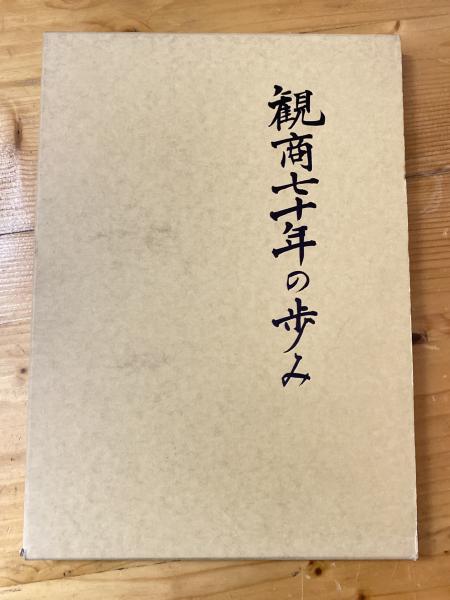 観商七十年の歩み